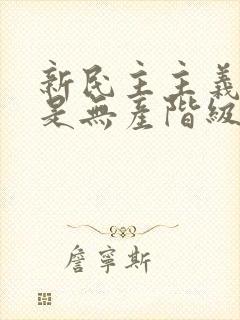 新民主主義
是無產階級
詹寧斯